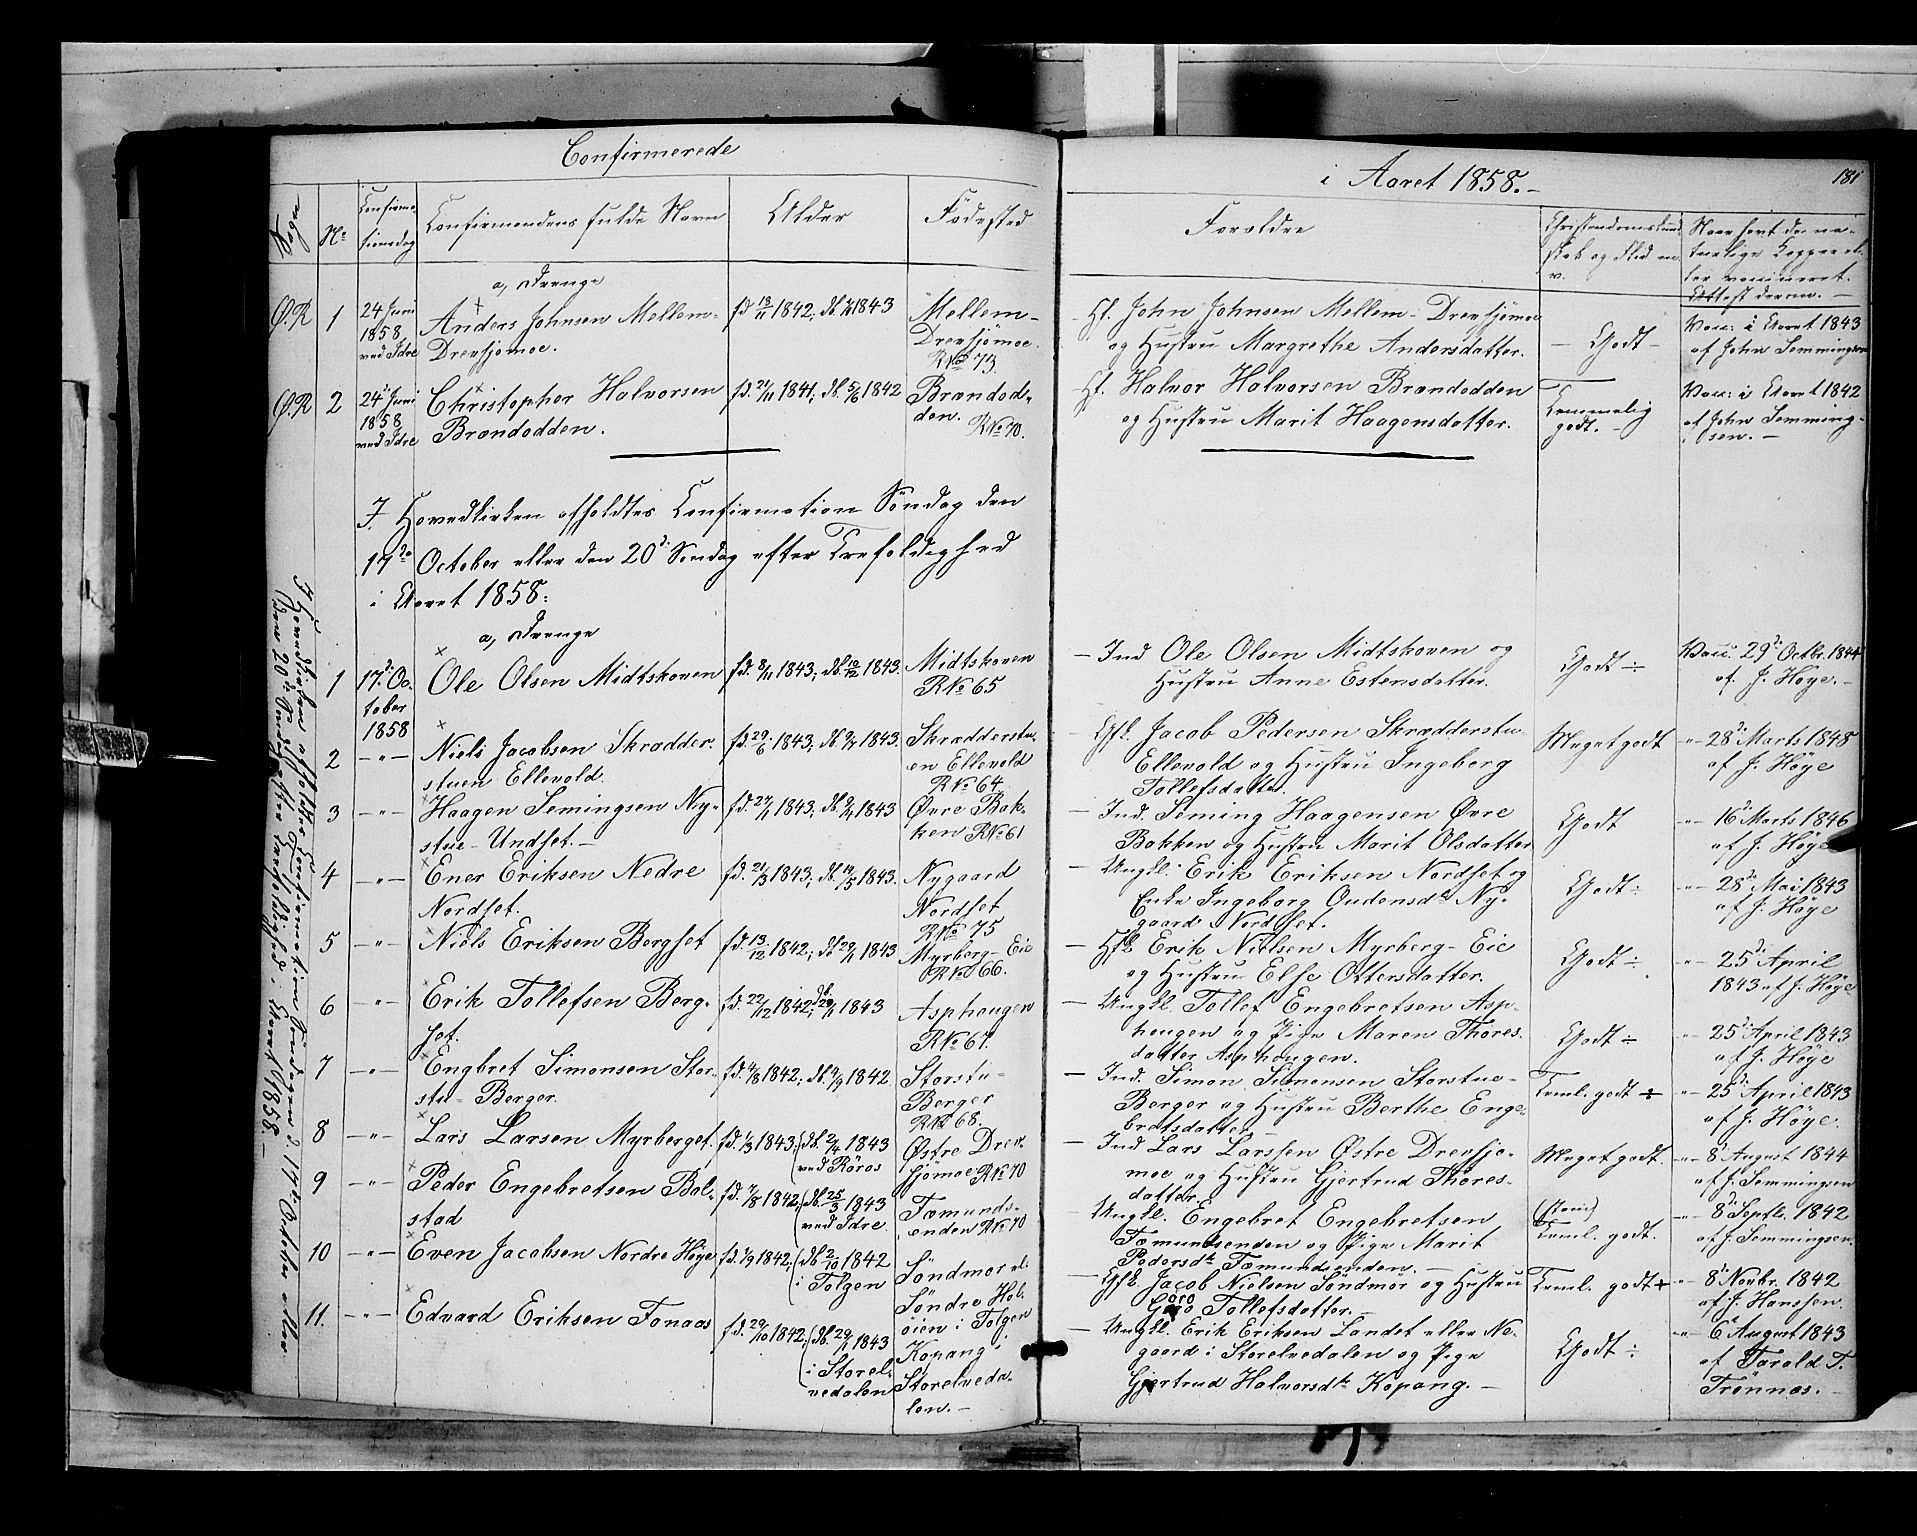 Confirmerede
i Aaret 1858.-
181
Sogn
No
Confirma-
tionsdag
Confirmandens fulde Navn
Alder
Fødested
Forældre
Christendomskund-
skab og Flid m.
v.
Naar havt de na-
turlige Kopper el-
ler vaccineret.
Attest derom. -
a, Drenge
Ø.R 1 24 Juni
1858
ved Idre
Anders Johnsen Mellem-
Drevsjømoe.
fd 13/11 1842; db. 1843
Mellem-
Drevsjømoe.
RNo 73.
Hf. John Johnsen Mellem-Drevsjømoe
og Hustru Margrethe Andersdatter.
- Godt -
Vacc: i Aaret 1843
af John Semmingsen
Ø.R 2 24d Juni
1858
ved Idre
Christopher Halvorsen
Brændodden.
fd. 21/11 1841; db. 5/6 1842
Brændod-
den.
RNo 70.
Hf. Halvor Halvorsen Brændodden
og Hustru Marit Haagensdatter.
Temmelig
godt. -
Vacc: i Aaret 1842
af John Semming-
sen. -
I Hovedkirken afholdtes Confirmation Søndag den
17de October eller den 20d Søndag efter Trefoldighed
i Aaret 1858:
I Hovedkirken afholdtes Confirmation Søndagen d. 17d October eller
den 20d Søndag efter Trefoldighed i Aaret 1858. -
a, Drenge
1 17d Oc-
tober
1858
Ole Olsen Midtskoven
fd. 8/11 1843; db. 10/12 1843.
Midtskoven
RNo 65
- Ind Ole Olsen Midtskoven og
Hustru Anne Estensdatter.
Godt ÷
Vacc. 29d Octbr. 1844
af J. Høye. -
2 -"-
Niels Jacobsen Skrædder-
stuen Ellevold.
fd. 29/6 1843; db. 9/7 1843.
Skrædderstu-
en Ellevold
RNo 64
Gfb. Jacob Pedersen Skrædderstu-
Ellevold og Hustru Ingeborg
Tollefsdatter
Meget godt
-"- 28d Marts 1848
af J. Høye
3 -"-
Haagen Semingsen Ny-
stue-Undset. -
fd. 27/1 1843; db. 9/4 1843
Øvre Bak-
ken RNo 61
- Ind. Seming Haagensen Øvre
Bakken og Hustru Marit Olsdatter
Godt
-"- 16d Marts 1846
af J. Høye
4 -"-
Ener Eriksen Nedre
Nordset.
fd. 21/3 1843; db. 14/5 1843.
Nygaard
Nordset
RNo 75
- Ungkl. Erik Eriksen Nordset og
Enke Ingeborg Oudensdtr Ny-
gaard Nordset.
Godt ÷
-"- 28d Mai 1843
af J. Høye
5 -"-
Niels Eriksen Bergset
fd. 13/12 1842; db 29/1 1843
Myrberg-Eie
RNo 66.
- Hfb Erik Nielsen Myrberg-Eie
og Hustru Else Ottersdatter.
Godt ÷
-"- 25d April
1843 af J. Høye
6 -"-
Erik Tollefsen Berg-
set.
fd. 22/12 1842; db 29/1 1843
Asphaugen
RNo 67.
- Ungkl. Tollef Engebretsen Asp-
haugen og Pige Maren Thores-
datter Asphaugen.
Godt ÷
-"- 25d April 1843
af J. Høye
7 -"-
Engbret Simonsen Stor-
stu-Berger.
fd. 4/8 1842; db. 4/9 1842
Storstu-
Berger
RNo 68.
- Ind. Simon Simonsen Storstue-
Berger og Hustru Berthe Enge-
bretsdatter -
Teml. godt ÷
-"- 25d April 1843
af J. Høye.
8 -"-
Lars Larsen Myrberget.
fd. 1/3 1843; (db. 2/4 1843
ved Røros
Østre Drev-
sjømoe RNo 70
- Ind Lars Larssen Østre Drevsjø-
moe og Hustru Gjertrud Thores-
datter.
Meget godt.
-"- 8d August 1844
af J. Semmingsen
9 -"-
Peder Engebretsen Bol-
stad
fd. 7/8 1842; (db. 25/3 1843
ved Idre.
Fæmunds-
enden RNo 70
- Ungkl. Engebret Engebretsen
Fæmundsenden og Pige Marit
Pedersdtr Fæmundsenden. -
Teml. godt.
-"- 8d Septbr. 1842
af J. Semmingsen.
10 -"-
Even Jacobsen Nordre Høye
fd. 1/9 1842; (db 2/10 1842
i Tolgen
Søndmor el.
Søndre Hol-
øien i Tolgen
- Gfb Jacob Nielsen Søndmor og Hustru
Goro Tollefsdatter. -
Teml. godt +
-"- 8d Novbr. 1842
af J. Hanssen.
11. -"-
Edvard Eriksen Fonaas
fd. 29/10 1842; (db. 29/1 1843
i Storel-
vedalen
Kopang i
Storelveda-
len. -
- Ungkl. Erik Eriksen Landet eller Ne-
gaard i Storelvedalen og Pige
Gjertrud Halvorsdtr Kopang. -
Godt ÷
-"- 6d August 1843
af Tarald T.
Trønnæs. -